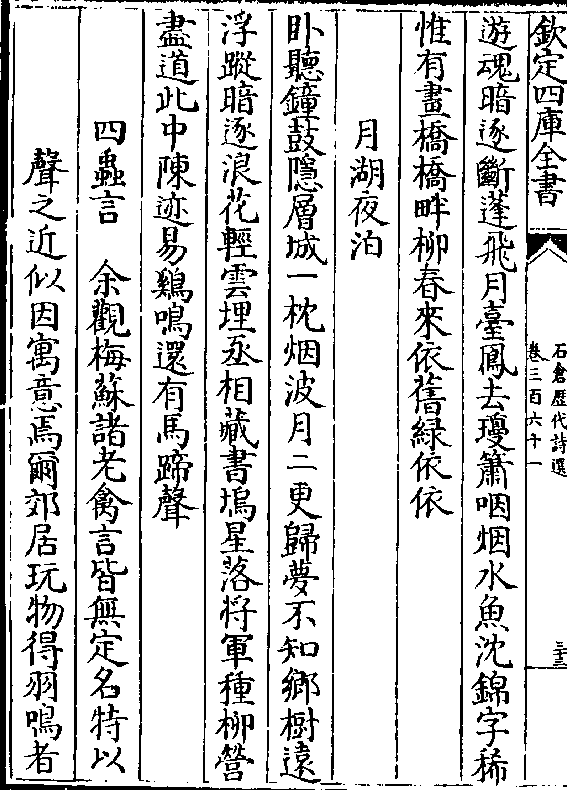 欽定四庫全書
石倉歷代詩選
卷三百六十一
三十三
遊魂暗逐斷蓬飛月臺鳳去瓊簫咽烟水魚沈錦字稀
惟有畫橋橋畔柳春來依舊緑依依
月湖夜泊
卧聽鐘鼓隱層城一枕烟波月二更歸夢不知鄉樹遠
浮蹤暗逐浪花輕雲埋丞相藏書塢星落將軍種柳營
盡道此中陳迹易鷄鳴還有馬蹄聲
四蟲言　余觀梅蘇諸老禽言皆無定名特以
聲之近似因寓意焉爾郊居玩物得羽鳴者